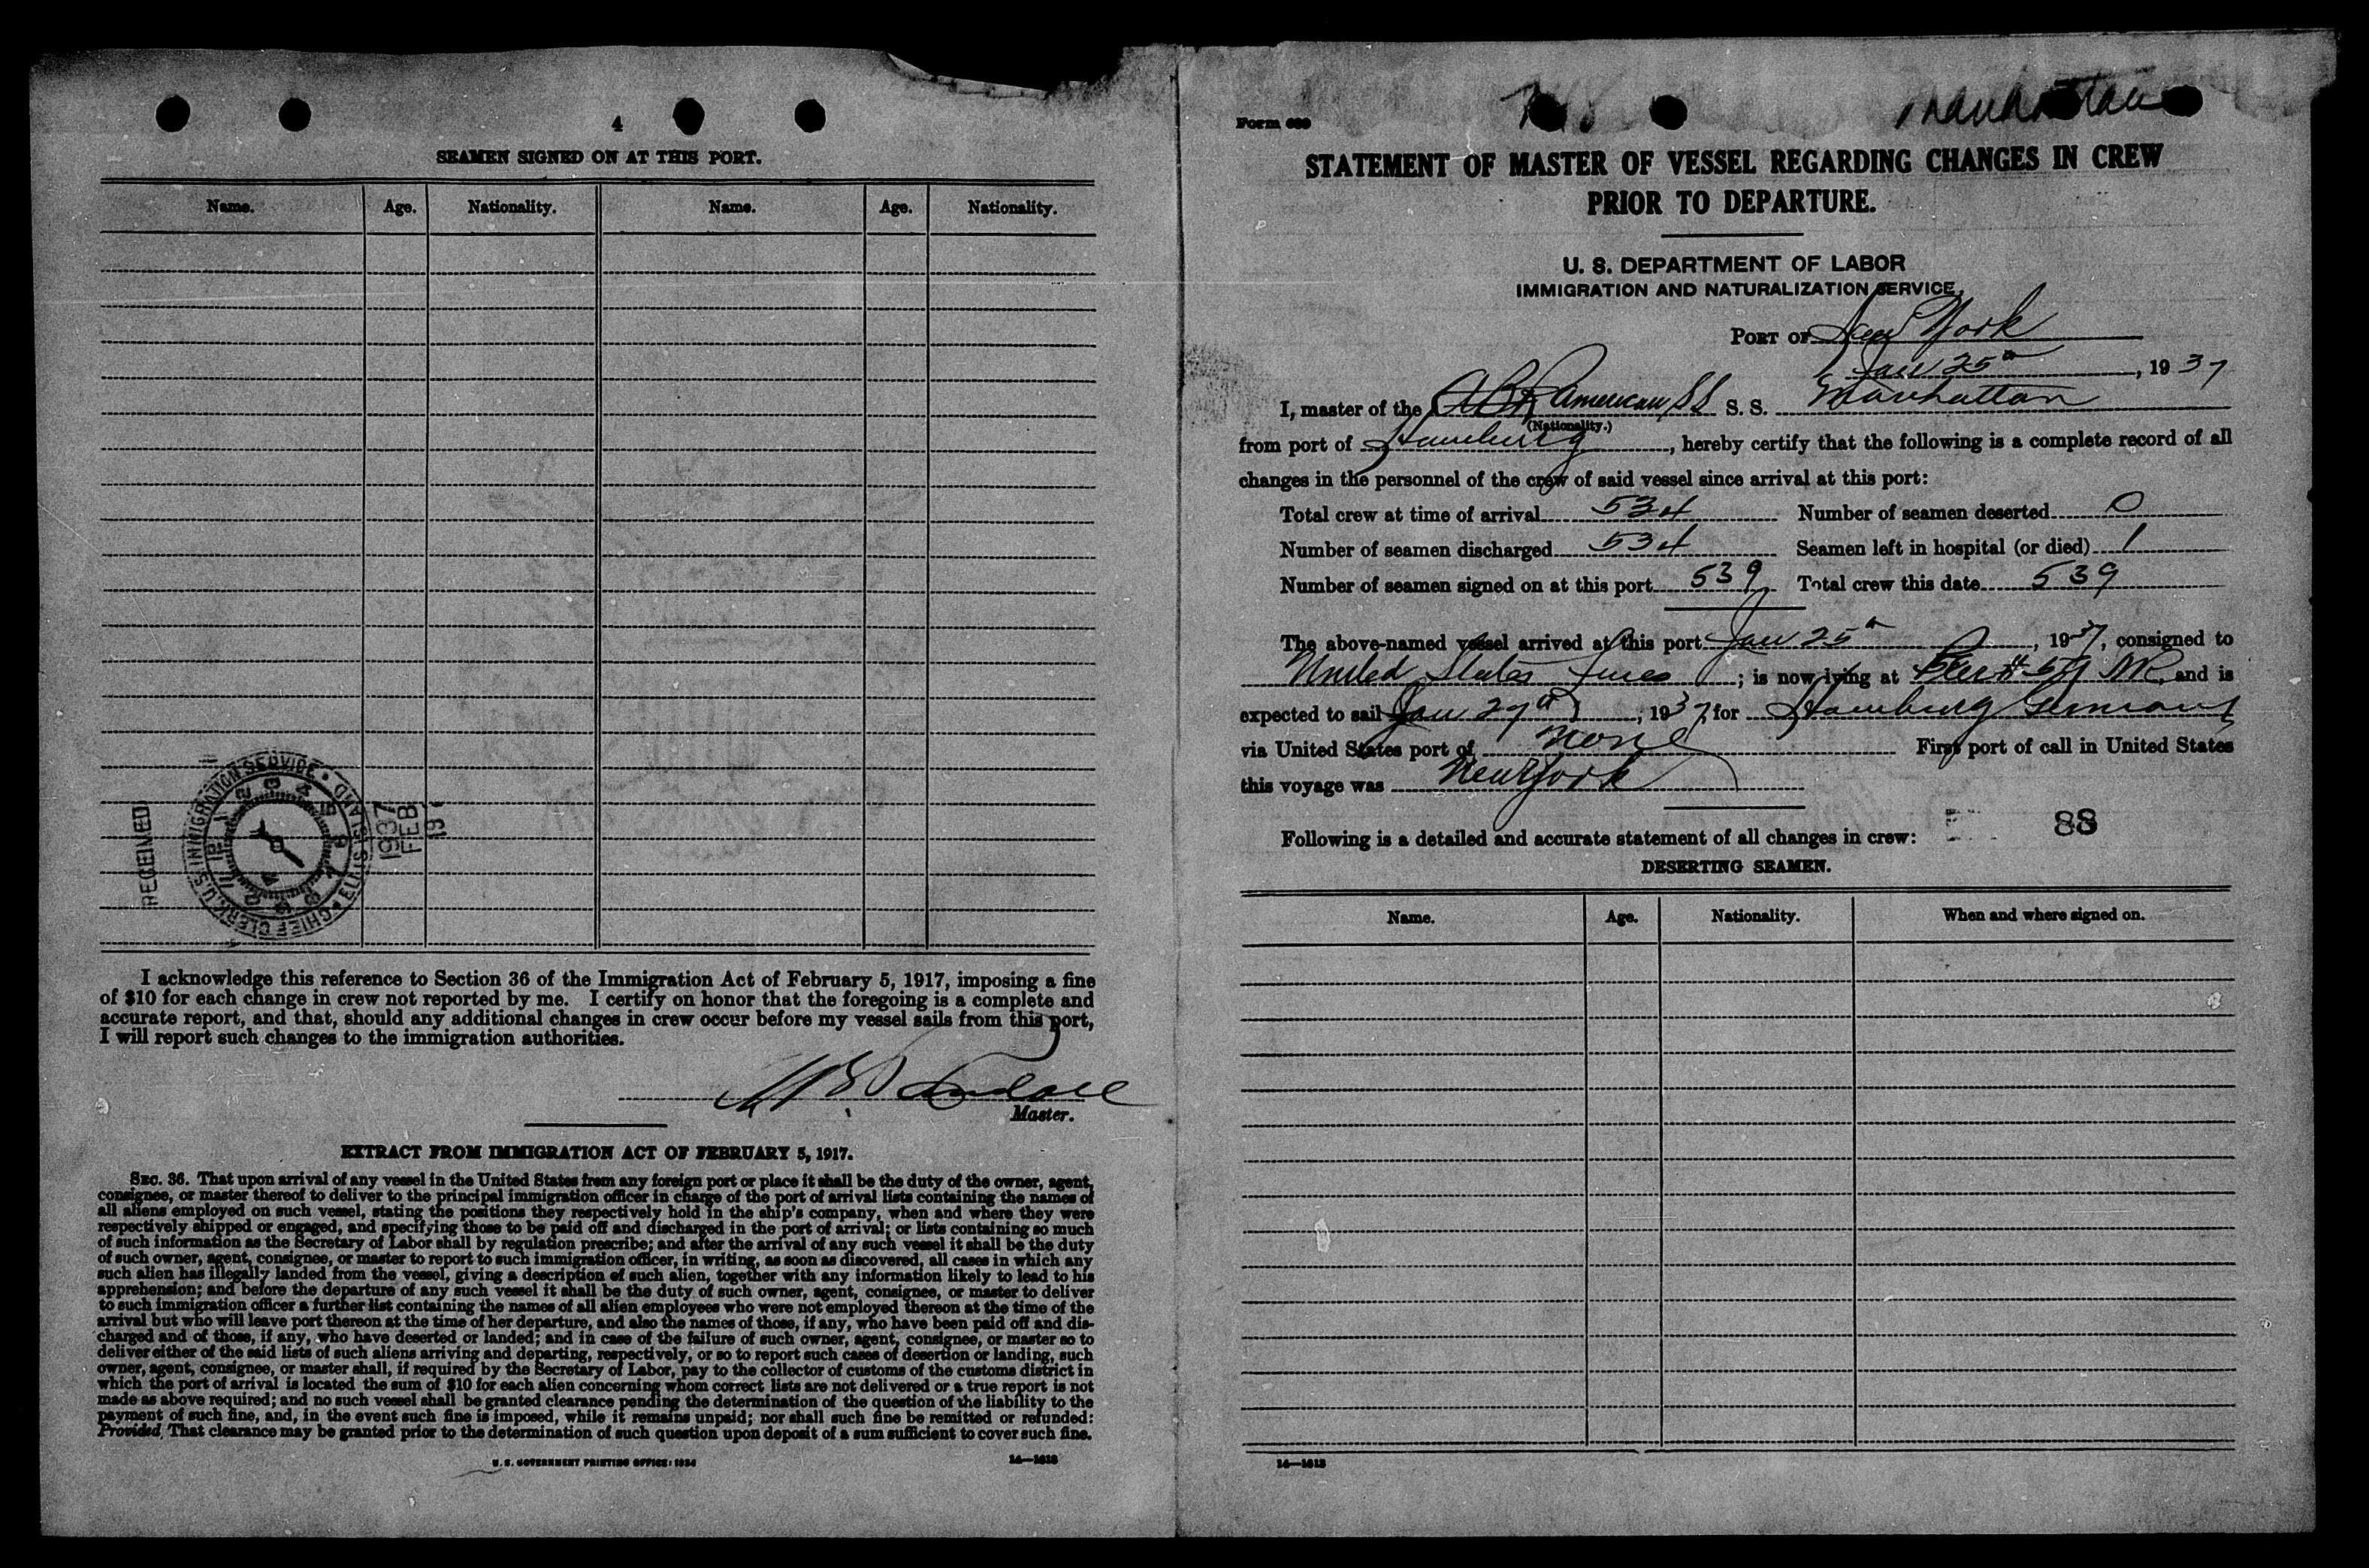 4
SEAMEN SIGNED ON AT THIS PORT.
Name. Age. Nationality. Name. Age. Nationality.
RECEIVED
U.S. IMMIGRATION SERVICE • ELLIS ISLAND • CHIEF CLERK
1937
FEB
I acknowledge this reference to Section 36 of the Immigration Act of February 5, 1917, imposing a fine
of $10 for each change in crew not reported by me. I certify on honor that the foregoing is a complete and
accurate report, and that, should any additional changes in crew occur before my vessel sails from this port,
I will report such changes to the immigration authorities.
Master.
EXTRACT FROM IMMIGRATION ACT OF FEBRUARY 5, 1917.
SEC. 36. That upon arrival of any vessel in the United States from any foreign port or place it shall be the duty of the owner, agent,
consignee, or master thereof to deliver to the principal immigration officer in charge of the port of arrival lists containing the names of
all aliens employed on such vessel, stating the positions they respectively hold in the ship's company, when and where they were
respectively shipped or engaged, and specifying those to be paid off and discharged in the port of arrival; or lists containing so much
of such information as the Secretary of Labor shall by regulation prescribe; and after the arrival of any such vessel it shall be the duty
of such owner, agent, consignee, or master to report to such immigration officer, in writing, as soon as discovered, all cases in which any
such alien has illegally landed from the vessel, giving a description of such alien, together with any information likely to lead to his
apprehension; and before the departure of any such vessel it shall be the duty of such owner, agent, consignee, or master to deliver
to such immigration officer a further list containing the names of all alien employees who were not employed thereon at the time of the
arrival but who will leave port thereon at the time of her departure, and also the names of those, if any, who have been paid off and dis-
charged and of those, if any, who have deserted or landed; and in case of the failure of such owner, agent, consignee, or master so to
deliver either of the said lists of such aliens arriving and departing, respectively, or so to report such cases of desertion or landing, such
owner, agent, consignee, or master shall, if required by the Secretary of Labor, pay to the collector of customs of the customs district in
which the port of arrival is located the sum of $10 for each alien concerning whom correct lists are not delivered or a true report is not
made as above required; and no such vessel shall be granted clearance pending the determination of the question of the liability to the
payment of such fine, and, in the event such fine is imposed, while it remains unpaid; nor shall such fine be remitted or refunded:
Provided, That clearance may be granted prior to the determination of such question upon deposit of a sum sufficient to cover such fine.
U. S. GOVERNMENT PRINTING OFFICE: 1934 14—1613
Manhattan
Form 689
STATEMENT OF MASTER OF VESSEL REGARDING CHANGES IN CREW
PRIOR TO DEPARTURE.
U. S. DEPARTMENT OF LABOR
IMMIGRATION AND NATURALIZATION SERVICE
PORT OF New York
Jan 25th, 1937
I, master of the American SS S. S. Manhattan
(Nationality.)
from port of Hamburg, hereby certify that the following is a complete record of all
changes in the personnel of the crew of said vessel since arrival at this port:
Total crew at time of arrival 534 Number of seamen deserted 0
Number of seamen discharged 534 Seamen left in hospital (or died) 1
Number of seamen signed on at this port 539 Total crew this date 539
The above-named vessel arrived at this port Jan 25th, 1937, consigned to
United States Lines; is now lying at Pier # 59 NR and is
expected to sail Jan 27th, 1937, for Hamburg Germany
via United States port of None First port of call in United States
this voyage was New York
Following is a detailed and accurate statement of all changes in crew: 88
DESERTING SEAMEN.
Name. Age. Nationality. When and where signed on.
14—1613